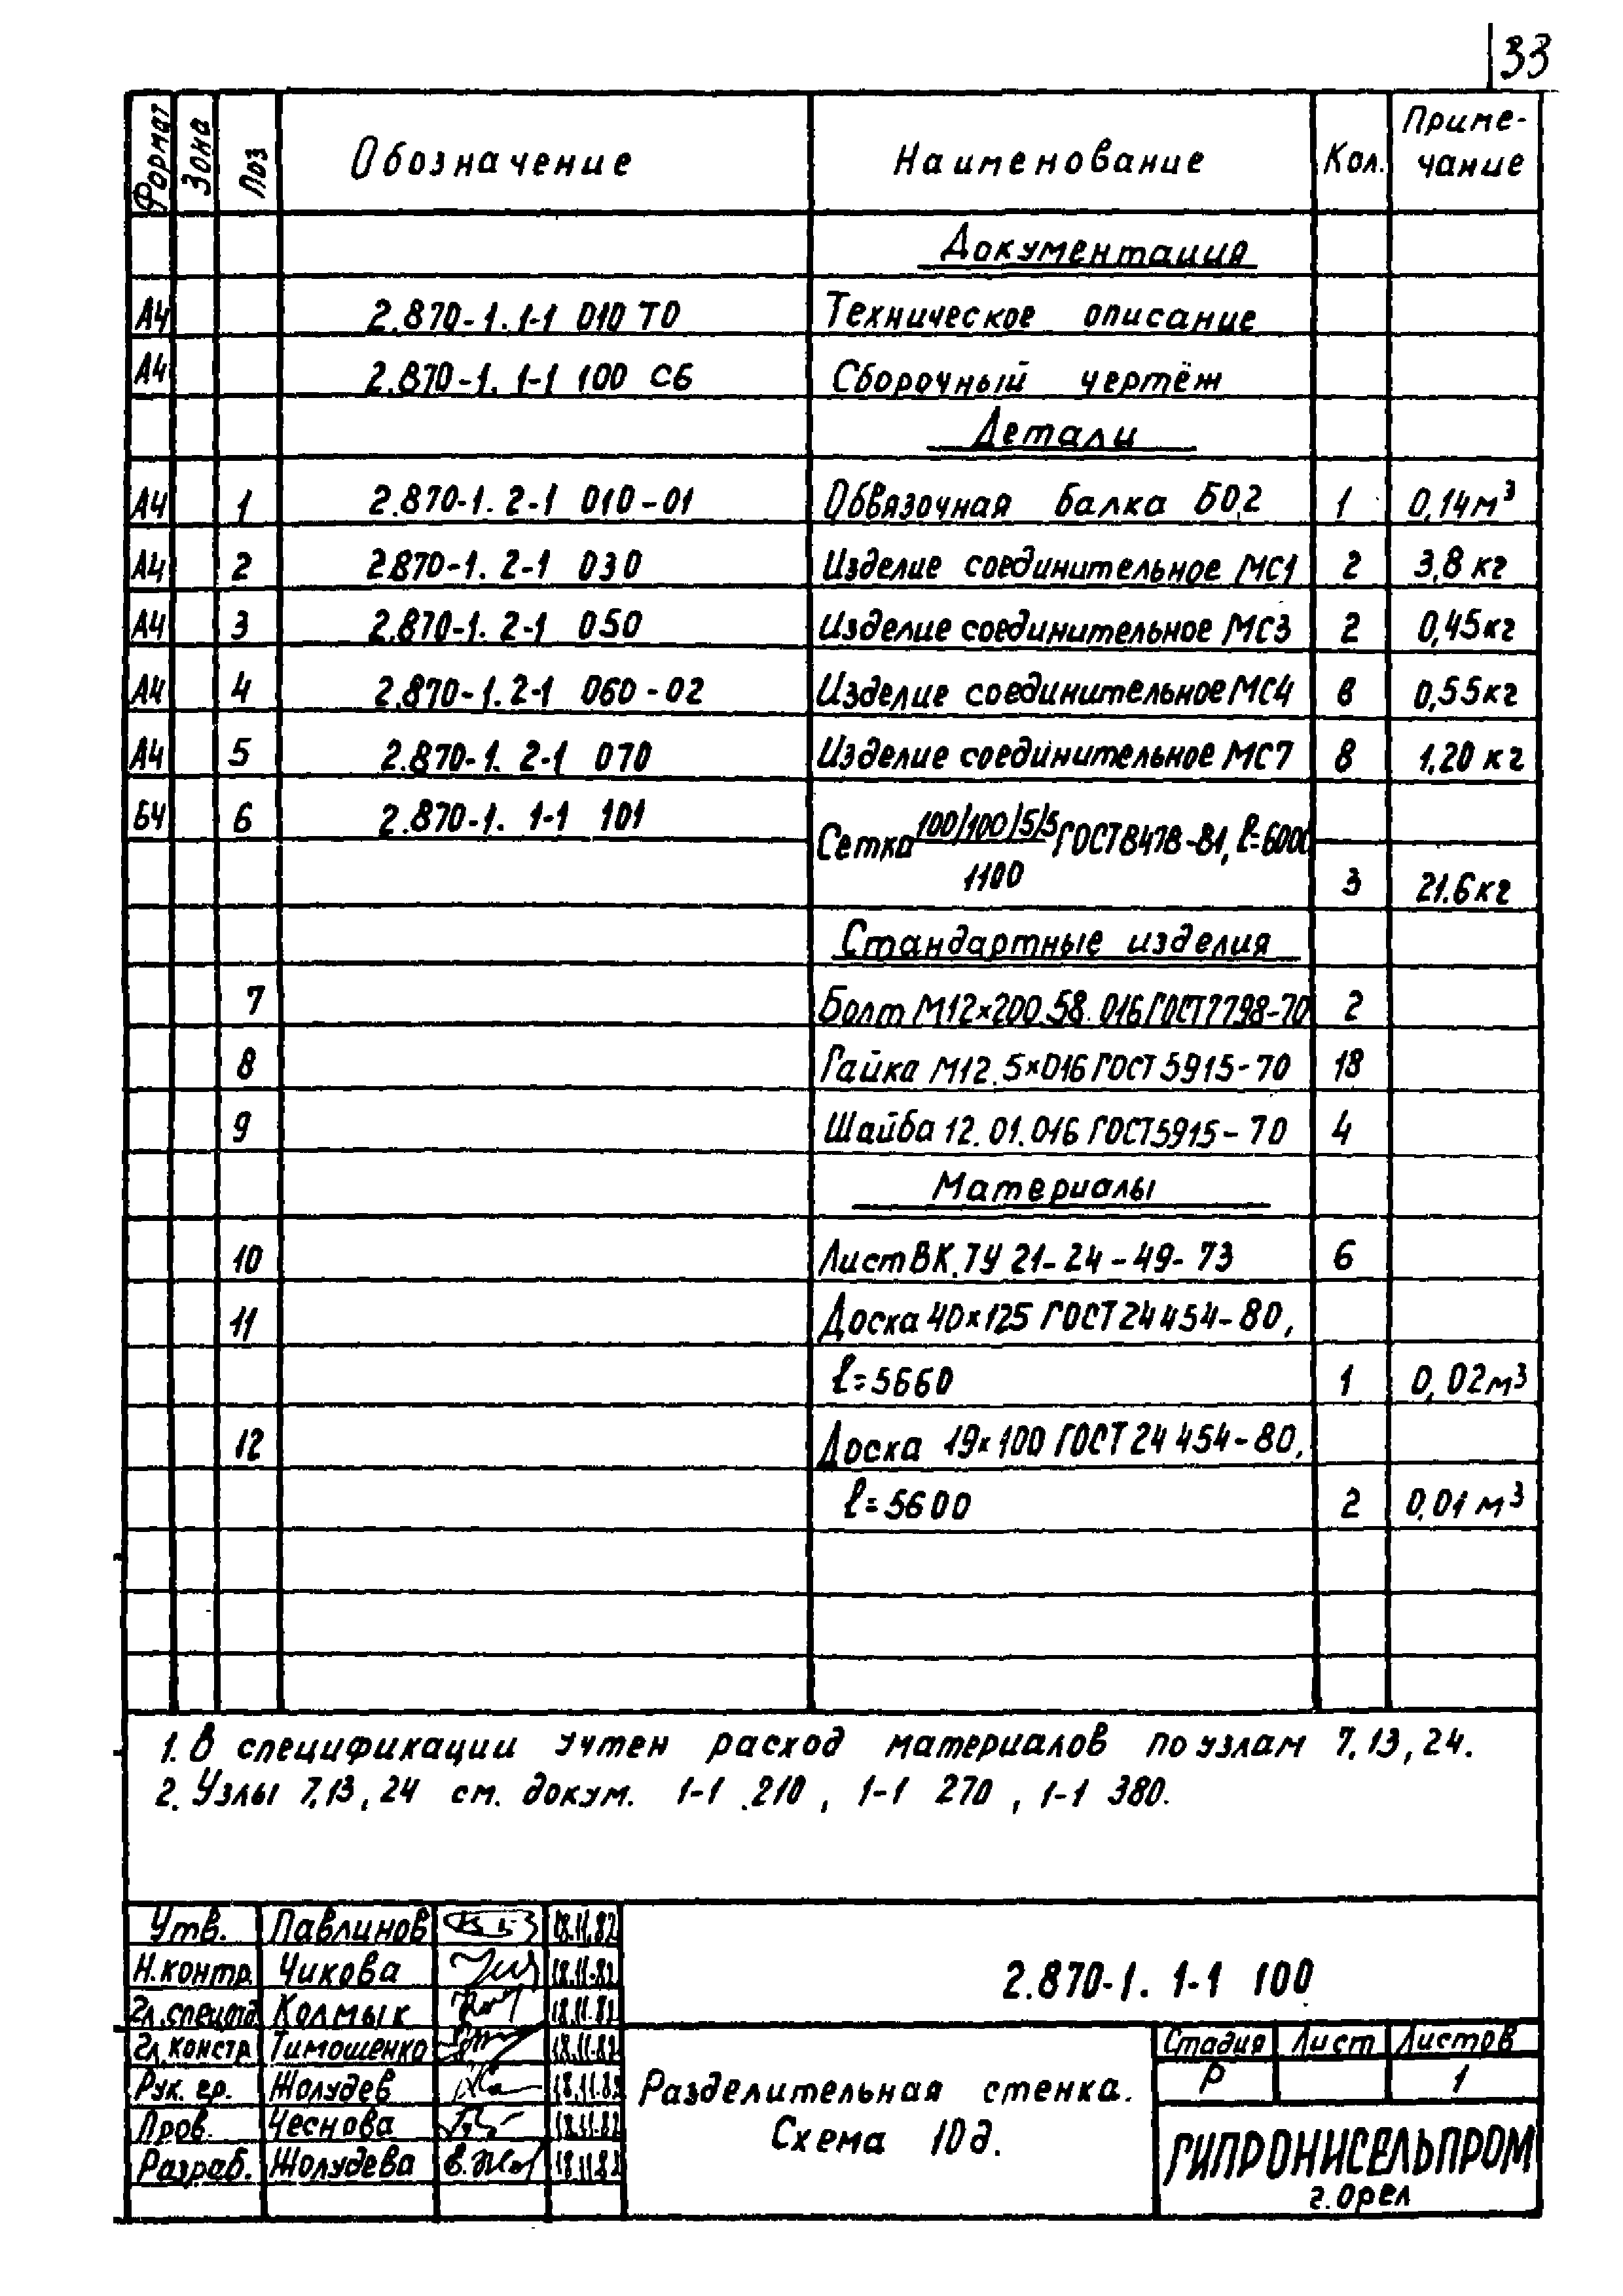 33
Формат Зона Поз Обозначение Наименование Кол. Приме-чание
Документация
А4 2.870-1. 1-1 010 ТО Техническое описание
А4 2.870-1. 1-1 100 Сб Сборочный чертёж
Детали
А4 1 2.870-1. 2-1 010-01 Обвязочная балка БО,2 1 0,14м³
А4 2 2.870-1. 2-1 030 Изделие соединительное МС1 2 3,8 кг
А4 3 2.870-1. 2-1 050 Изделие соединительное МС3 2 0,45кг
А4 4 2.870-1. 2-1 060-02 Изделие соединительное МС4 8 0,55кг
А4 5 2.870-1. 2-1 070 Изделие соединительное МС7 8 1,20 кг
БЧ 6 2.870-1. 1-1 101 Сетка 100/100/5/5 ГОСТ 8478-81, ℓ=6000
1100 3 21.6кг
Стандартные изделия
7 Болт М12×200.58.016 ГОСТ 7798-70 2
8 Гайка М12.5×016 ГОСТ 5915-70 18
9 Шайба 12.01.016 ГОСТ 5915-70 4
Материалы
10 Лист ВК.ТУ 21-24-49-73 6
11 Доска 40×125 ГОСТ 24454-80,
ℓ=5660 1 0,02м³
12 Доска 19×100 ГОСТ 24454-80,
ℓ=5600 2 0,01 м³
1. В спецификации учтен расход материалов по узлам 7,13,24.
2. Узлы 7,13,24 см. докум. 1-1 .210, 1-1 270, 1-1 380.
Утв. Павлинов 18.11.82
Н.контр. Чикова 18.11.82
Гл.спецотд. Колмык 18.11.82
Гл.констр Тимошенко 18.11.82
Рук. гр. Жолудев 18.11.82
Пров. Чеснова 18.11.82
Разраб. Жолудева 18.11.82
2.870-1. 1-1 100
Разделительная стенка.
Схема 10д.
Стадия Лист Листов
Р 1
ГИПРОНИСЕЛЬПРОМ
г.Орел